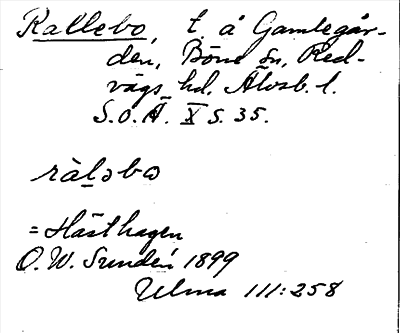 Rallebo, t. å Gamlegår-
den, Böne sn, Red-
vägs hd. Älvsb. l.
S.O.Ä. X s. 35.
ràl̠əbɷ
= Hästhagen
O. W. Sundén 1899
Ulma 111:258